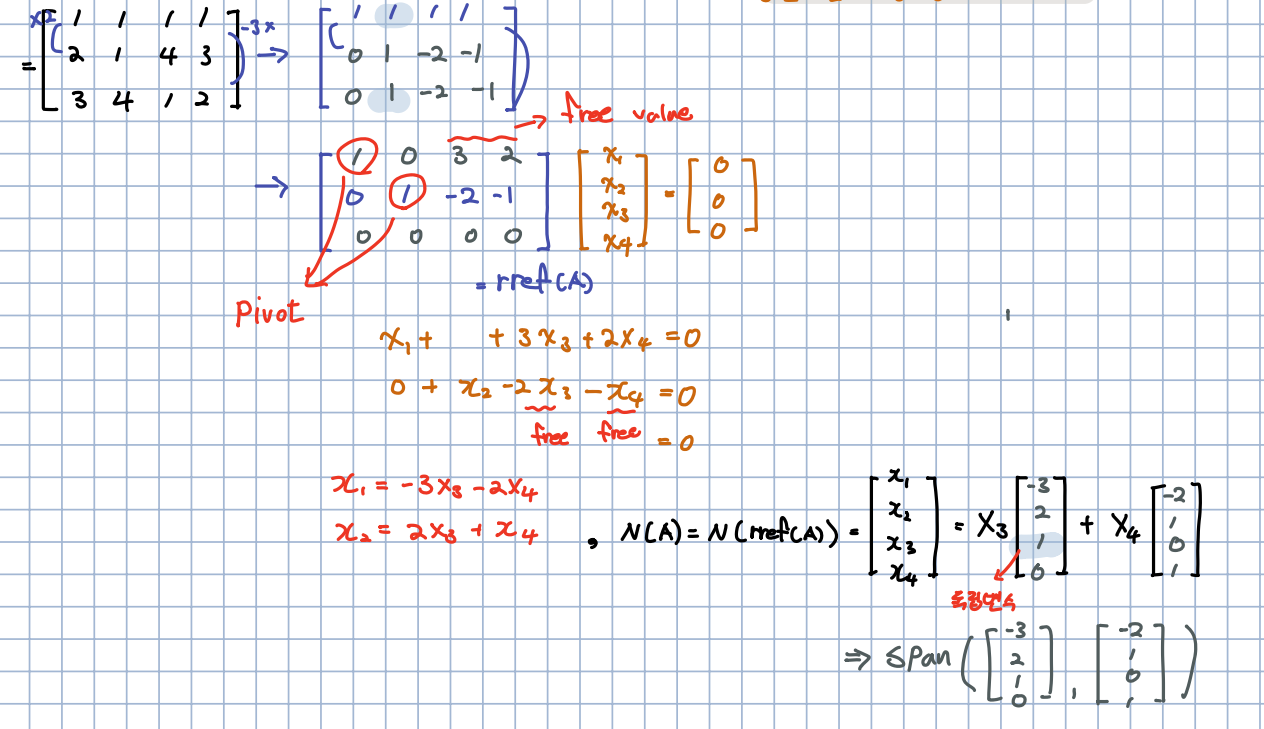 x2 [1 1 1 1] -3x → [1 1 1 1]
= [2 1 4 3] [0 1 -2 -1]
[3 4 1 2] [0 1 -2 -1]
→ free value
→ [1 0 3 2] [x₁] = [0]
[0 1 -2 -1] [x₂] [0]
[0 0 0 0] [x₃] [0]
[x₄]
= rref(A)
Pivot
x₁ + + 3x₃ + 2x₄ = 0
0 + x₂ -2x₃ - x₄ = 0
free free = 0
x₁ = -3x₃ - 2x₄
x₂ = 2x₃ + x₄ , N(A) = N(rref(A)) = [x₁ x₂ x₃ x₄] = x₃ [-3 2 1 0] + x₄ [-2 1 0 1]
독립변수
⇒ span([-3 2 1 0], [-2 1 0 1])